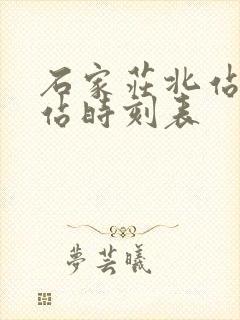 石家莊北佔
佔時刻表
夢芸曦